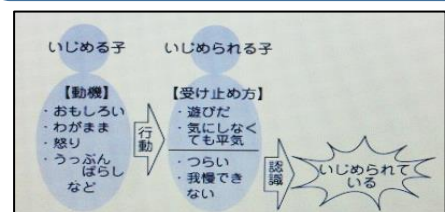 いじめる子
いじめられる子
【動機】
・おもしろい
・わがまま
・怒り
・うっぷん
ばらし
など
行動
【受け止め方】
・遊びだ
・気にしなく
ても平気
・つらい
・我慢でき
ない
認識
いじめられて
いる